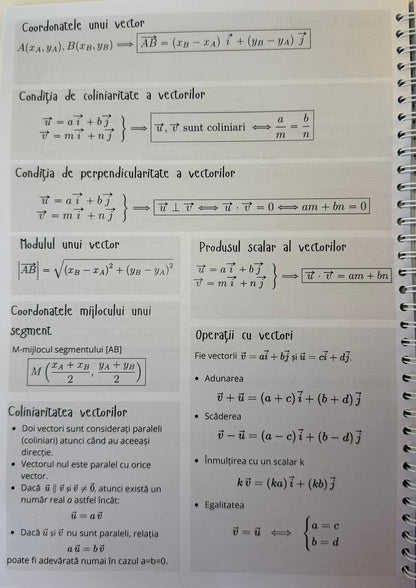 Coordonatele unui vector
A(x_A, y_A), B(x_B, y_B) ⟹ AB⃗ = (x_B − x_A) i⃗ + (y_B − y_A) j⃗
Condiția de coliniaritate a vectorilor
u⃗ = a i⃗ + b j⃗
v⃗ = m i⃗ + n j⃗ } ⟹ u⃗, v⃗ sunt coliniari ⟺ a/m = b/n
Condiția de perpendicularitate a vectorilor
u⃗ = a i⃗ + b j⃗
v⃗ = m i⃗ + n j⃗ } ⟹ u⃗ ⊥ v⃗ ⟺ u⃗ · v⃗ = 0 ⟺ am + bn = 0
Modulul unui vector
|AB⃗| = √((x_B − x_A)² + (y_B − y_A)²)
Produsul scalar al vectorilor
u⃗ = a i⃗ + b j⃗
v⃗ = m i⃗ + n j⃗ } ⟹ u⃗ · v⃗ = am + bn
Coordonatele mijlocului unui
segment
M-mijlocul segmentului [AB]
M((x_A + x_B)/2, (y_A + y_B)/2)
Coliniaritatea vectorilor
• Doi vectori sunt considerați paraleli
(coliniari) atunci când au aceeași
direcție.
• Vectorul nul este paralel cu orice
vector.
• Dacă u⃗ ∥ v⃗ și v⃗ ≠ 0⃗, atunci există un
număr real a astfel încât:
u⃗ = a v⃗
• Dacă u⃗ și v⃗ nu sunt paraleli, relația
a u⃗ = b v⃗
poate fi adevărată numai în cazul a=b=0.
Operații cu vectori
Fie vectorii v⃗ = ai⃗ + bj⃗ și u⃗ = ci⃗ + dj⃗.
• Adunarea
v⃗ + u⃗ = (a + c) i⃗ + (b + d) j⃗
• Scăderea
v⃗ − u⃗ = (a − c) i⃗ + (b − d) j⃗
• Înmulțirea cu un scalar k
k v⃗ = (ka) i⃗ + (kb) j⃗
• Egalitatea
v⃗ = u⃗ ⟺ { a = c
b = d